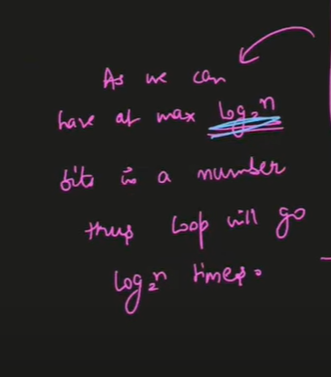 As we can
have at max log₂n
bits in a number
thus loop will go
log₂n times.